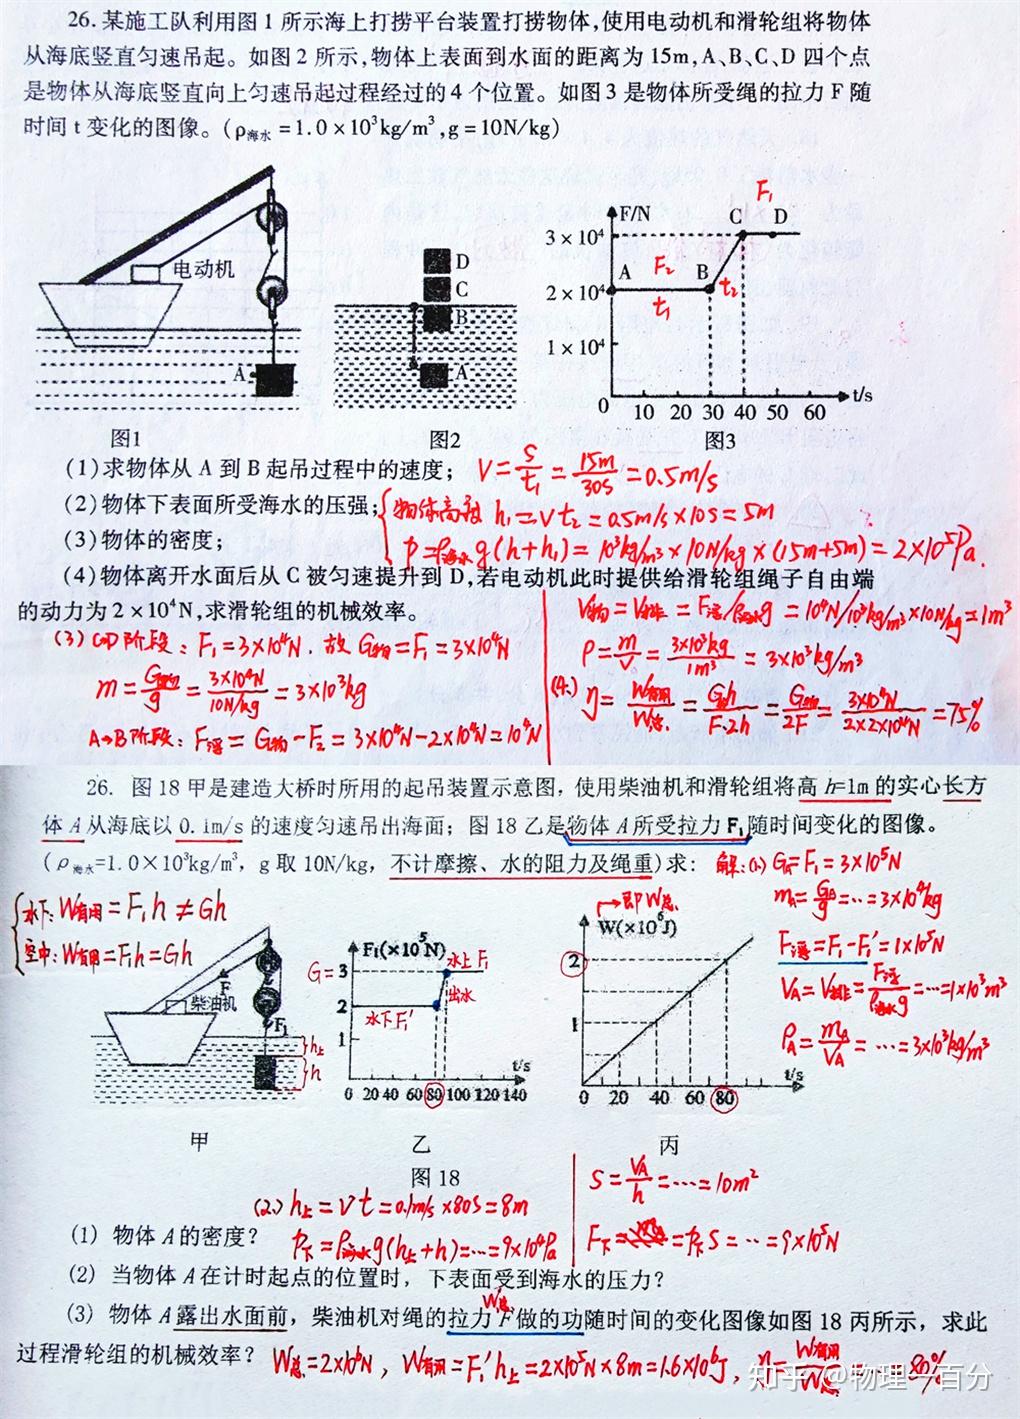 26.某施工队利用图1所示海上打捞平台装置打捞物体,使用电动机和滑轮组将物体
从海底竖直匀速吊起。如图2所示,物体上表面到水面的距离为15m,A、B、C、D四个点
是物体从海底竖直向上匀速吊起过程经过的4个位置。如图3是物体所受绳的拉力F随
时间t变化的图像。(ρ海水=1.0×10³kg/m³,g=10N/kg)
电动机
A
图1
D
C
B
A
图2
F/N
3×10⁴
2×10⁴
1×10⁴
A F₂ B
t₁ t₂
C D F₁
0 10 20 30 40 50 60 t/s
图3
(1)求物体从A到B起吊过程中的速度; V=S/t₁=15m/30s=0.5m/s
(2)物体下表面所受海水的压强; 物体高度 h₁=Vt₂=0.5m/s×10s=5m
(3)物体的密度; P=ρ海水g(h+h₁)=10³kg/m³×10N/kg×(15m+5m)=2×10⁵Pa.
(4)物体离开水面后从C被匀速提升到D,若电动机此时提供给滑轮组绳子自由端
的动力为2×10⁴N,求滑轮组的机械效率。
(3)CD阶段:F₁=3×10⁴N.故G物=F₁=3×10⁴N
m=G物/g=3×10⁴N/10N/kg=3×10³kg
A→B阶段:F浮=G物-F₂=3×10⁴N-2×10⁴N=10⁴N
V物=V排=F浮/ρ海水g=10⁴N/10³kg/m³×10N/kg=1m³
ρ=m/V=3×10³kg/1m³=3×10³kg/m³
(4.)η=W有用/W总=Gh/F·2h=G物/2F=3×10⁴N/2×2×10⁴N=75%
26. 图18甲是建造大桥时所用的起吊装置示意图,使用柴油机和滑轮组将高h=1m的实心长方
体A从海底以0.1m/s的速度匀速吊出海面;图18乙是物体A所受拉力F₁随时间变化的图像。
(ρ海水=1.0×10³kg/m³,g取10N/kg,不计摩擦、水的阻力及绳重)求: 解:(1)GA=F₁=3×10⁵N
mA=GA/g=…=3×10⁴kg
F浮=F₁-F₁'=1×10⁵N
VA=V排=F浮/ρ海水g=…=1×10³m³
ρA=mA/VA=…=3×10³kg/m³
水下:W有用=F₁h≠Gh
空中:W有用=F₁h=Gh
F
柴油机
F₁
h上
h
甲
F₁(×10⁵N)
G=3
2
1
水上F₁
出水
水下F₁'
0 20 40 60 80 100 120 140 t/s
乙
→即W总
W(×10⁶J)
2
1
0 20 40 60 80 t/s
丙
图18
(2.)h上=Vt=0.1m/s×80s=8m
P下=ρ海水g(h上+h)=…=9×10⁴Pa
S=VA/h=…=10m²
F下=P下S=…=9×10⁵N
(1) 物体A的密度?
(2) 当物体A在计时起点的位置时,下表面受到海水的压力?
(3) 物体A露出水面前,柴油机对绳的拉力F做的功随时间的变化图像如图18丙所示,求此
W总
过程滑轮组的机械效率? W总=2×10⁶N,W有用=F₁'h上=2×10⁵N×8m=1.6×10⁶J,η=W有用/W总=80%
知乎 @物理一百分